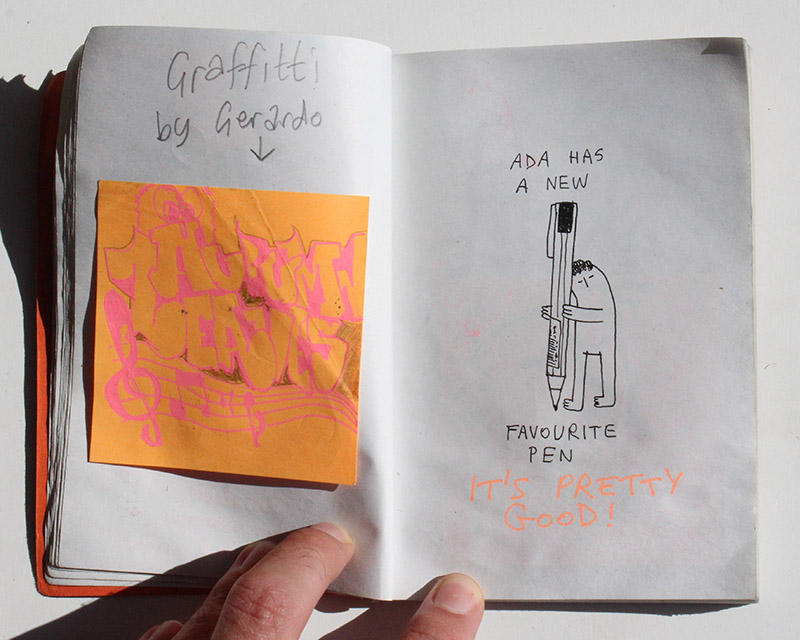 Graffitti
by Gerardo
AUTUMN
LEAVES
ADA HAS
A NEW
FAVOURITE
PEN
IT'S PRETTY
GOOD!